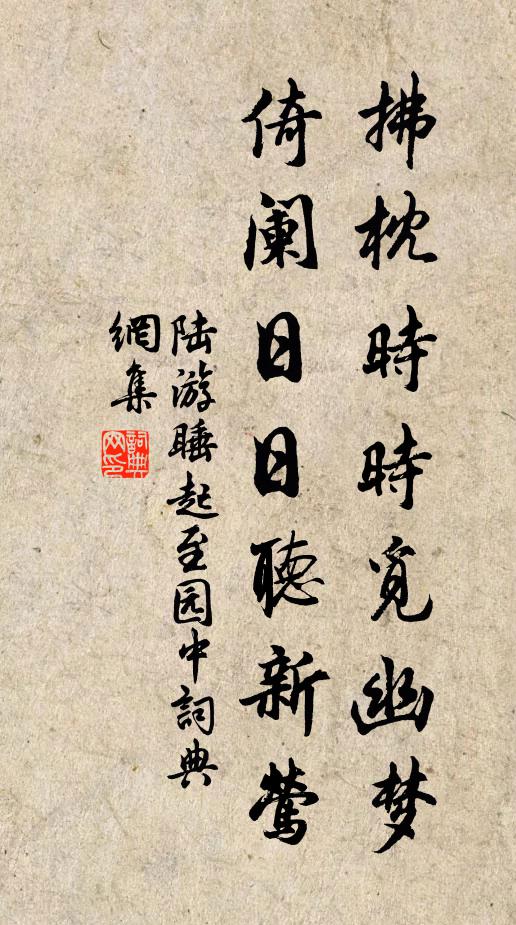 拂枕時時覓幽梦
倚阑日日聽新莺
陆游睡起至园中詞典
網集
詞典
网印